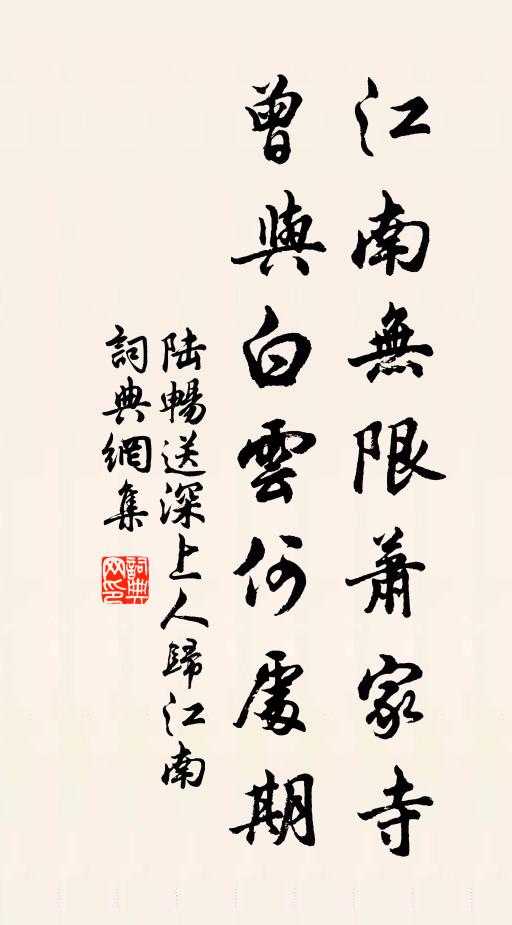 江南無限蕭家寺
曾與白雲何處期
陸暢送深上人歸江南
詞典網集
詞典网印